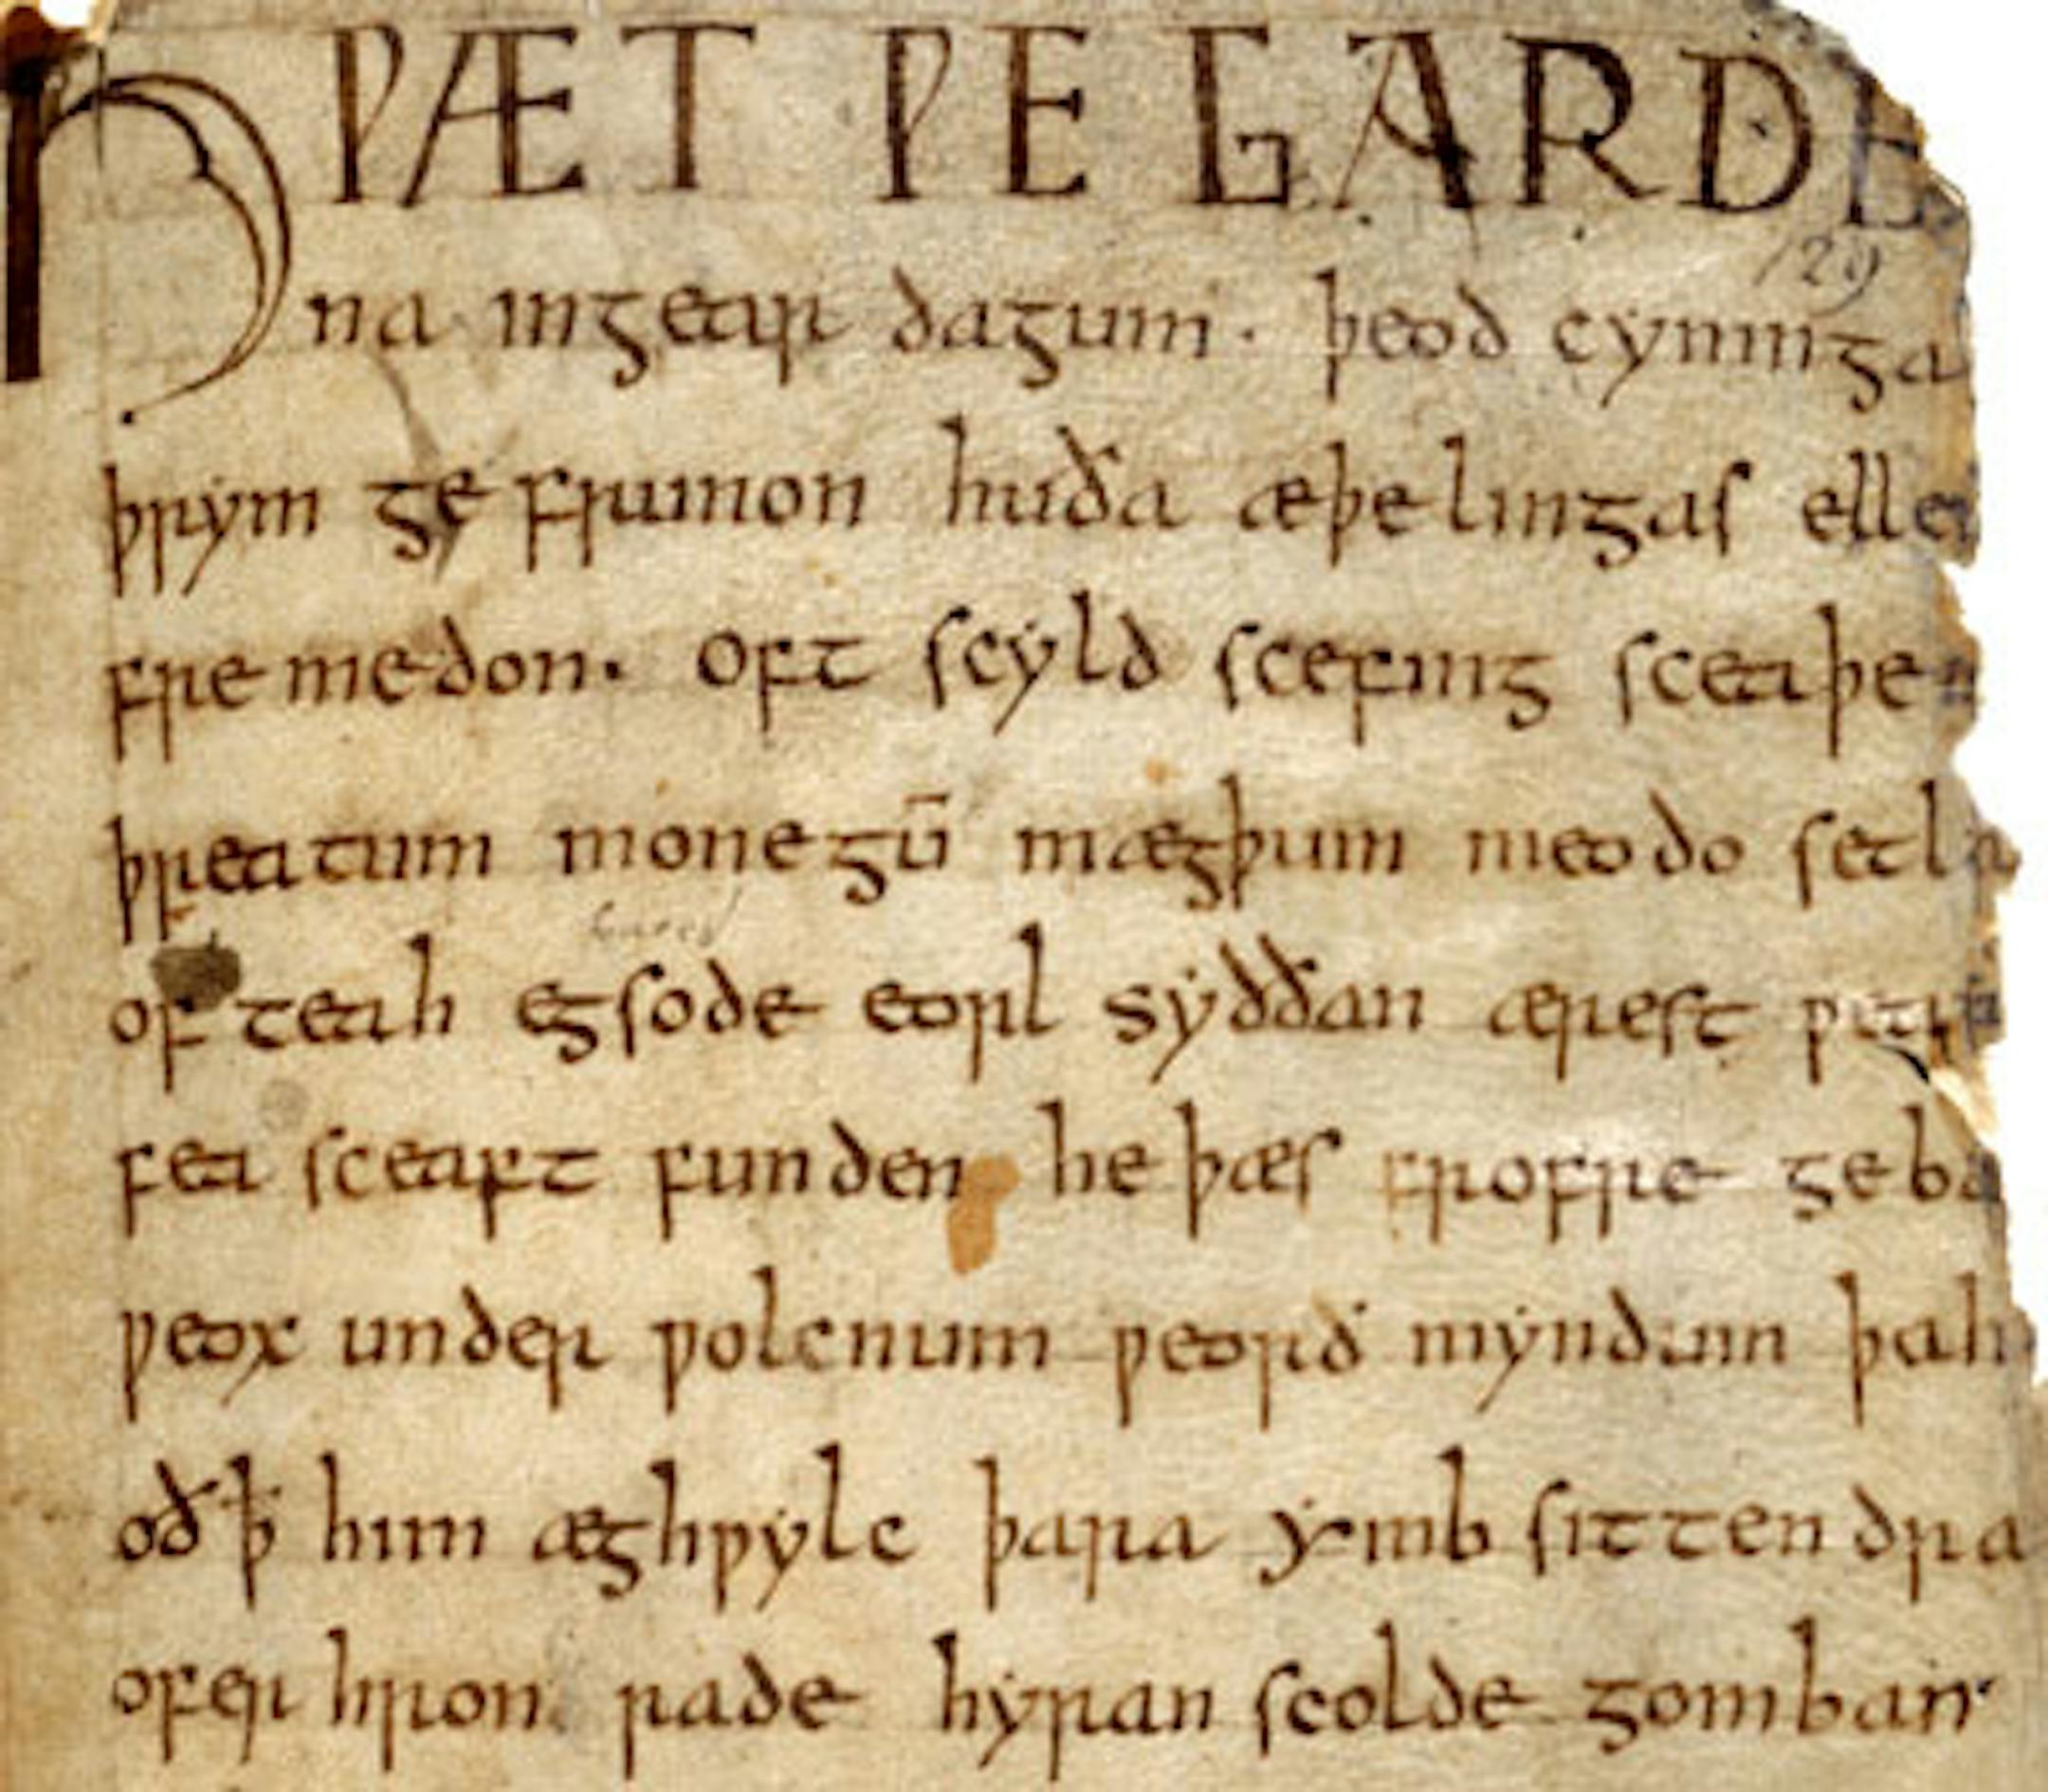 HǷÆT ǷE GARDE
129
na ingear dagum · þeod cyninga
þrym ge frunon huða æþelingas elle
fremedon · oft scyld scefing sceaþe
þreatum monegū mægþum meodo setla
of teah egsode eorl syððan ærest
fea sceaft funden he þæs frofre geba
ƿeox under ƿolcnum ƿeorð myndum þah
oð ꝥ him æghƿylc þara ymb sittendra
ofer hron rade hyran scolde gomban